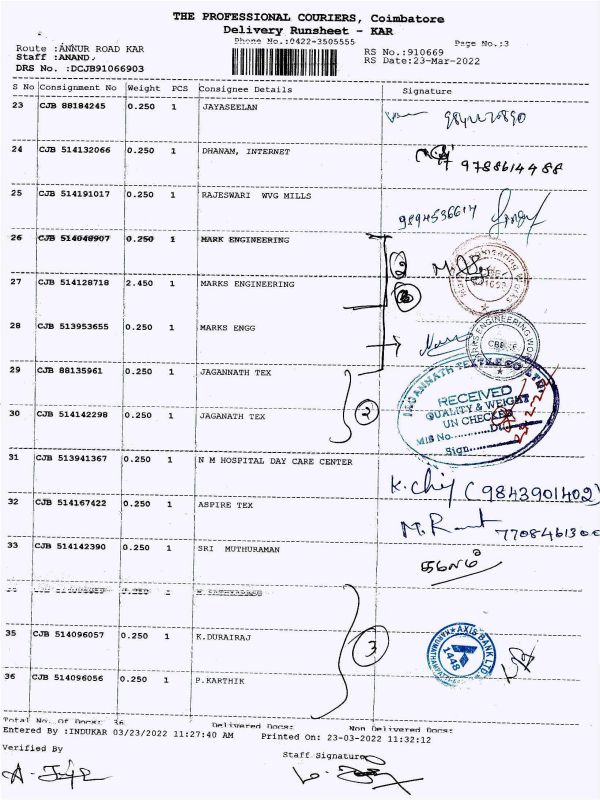 THE PROFESSIONAL COURIERS, Coimbatore
Delivery Runsheet - KAR
Phone No.:0422-3505555
Page No.:3
Route :ANNUR ROAD KAR
Staff :ANAND,
DRS No. :DCJB91066903
RS No.:910669
RS Date:23-Mar-2022
S No Consignment No Weight PCS Consignee Details Signature
23 CJB 88184245 0.250 1 JAYASEELAN
24 CJB 514132066 0.250 1 DHANAM, INTERNET 9788614488
25 CJB 514191017 0.250 1 RAJESWARI WVG MILLS 9894536614
26 CJB 514048907 0.250 1 MARK ENGINEERING
27 CJB 514128718 2.450 1 MARKS ENGINEERING
28 CJB 513953655 0.250 1 MARKS ENGG
29 CJB 88135961 0.250 1 JAGANNATH TEX
30 CJB 514142298 0.250 1 JAGANATH TEX 2
JAGANNATH TEXTILE CO LTD.,
RECEIVED
QUALITY & WEIGHT
UN CHECKED
MIS No. Dt.
Sign.
31 CJB 513941367 0.250 1 N M HOSPITAL DAY CARE CENTER
(9843901402)
32 CJB 514167422 0.250 1 ASPIRE TEX
33 CJB 514142390 0.250 1 SRI MUTHURAMAN
35 CJB 514096057 0.250 1 K.DURAIRAJ 3
AXIS BANK LTD
1448
36 CJB 514096056 0.250 1 P.KARTHIK
Total No. Of Docs: 36 Delivered Docs: Non Delivered Docs:
Entered By :INDUKAR 03/23/2022 11:27:40 AM Printed On: 23-03-2022 11:32:12
Verified By Staff Signature